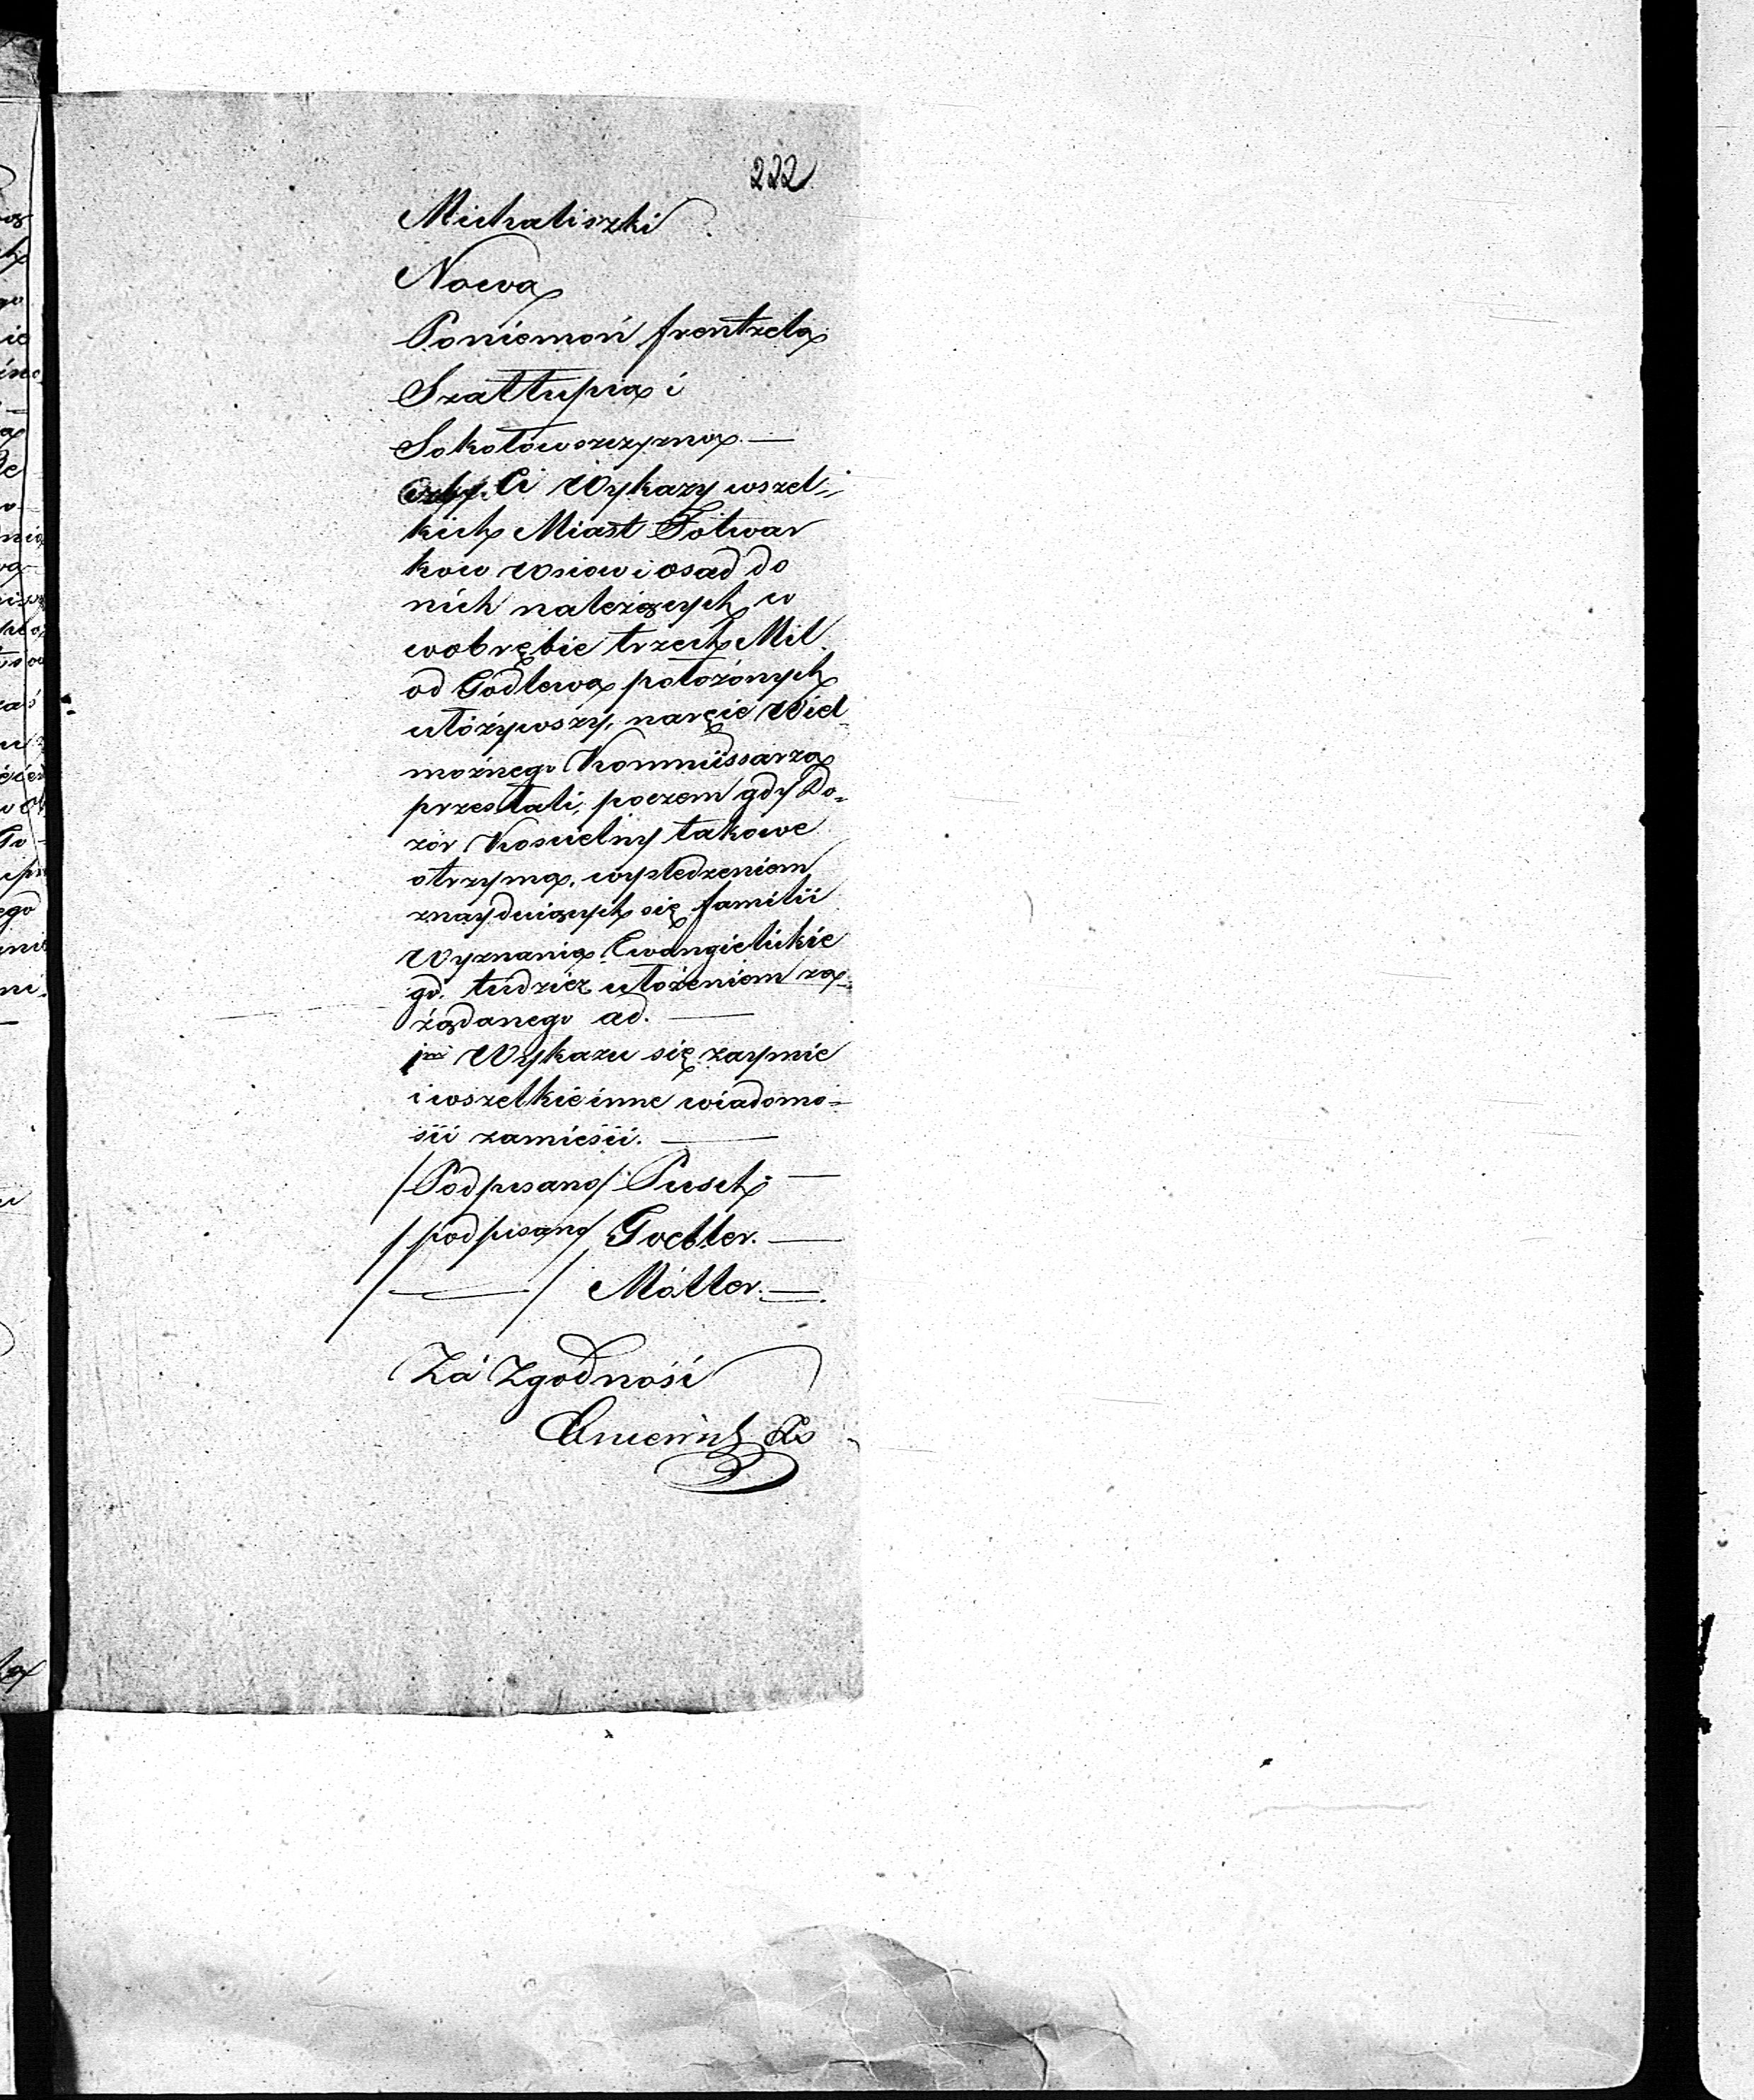 222
Michaliszki
Nowa
Poniemoń frentzela
Szałtupia i
Sokołowszczyzna. —
Ci Wykazy wszel=
kich Miast Folwar
kow Wsiow i osad do
nich należących w
wobrębie trzech Mil
od Godlewa położonych
ułożywszy, naręcie Wiel
możnego Kommissarza
przesłali, poczem gdy Do=
zór Koscielny takowe
otrzyma, wysledzeniem
znayduiących się familii
Wyznania Ewangielickie
go. tudzież ułożeniem za=
żądanego ad. —
Wykazu się zaymie
i wszelkie inne wiadomo=
ści zamieści. —
/Podpisano/ Pusch —
/podpisano/ Goebler. —
/ — / Möller. —
Za Zgodność